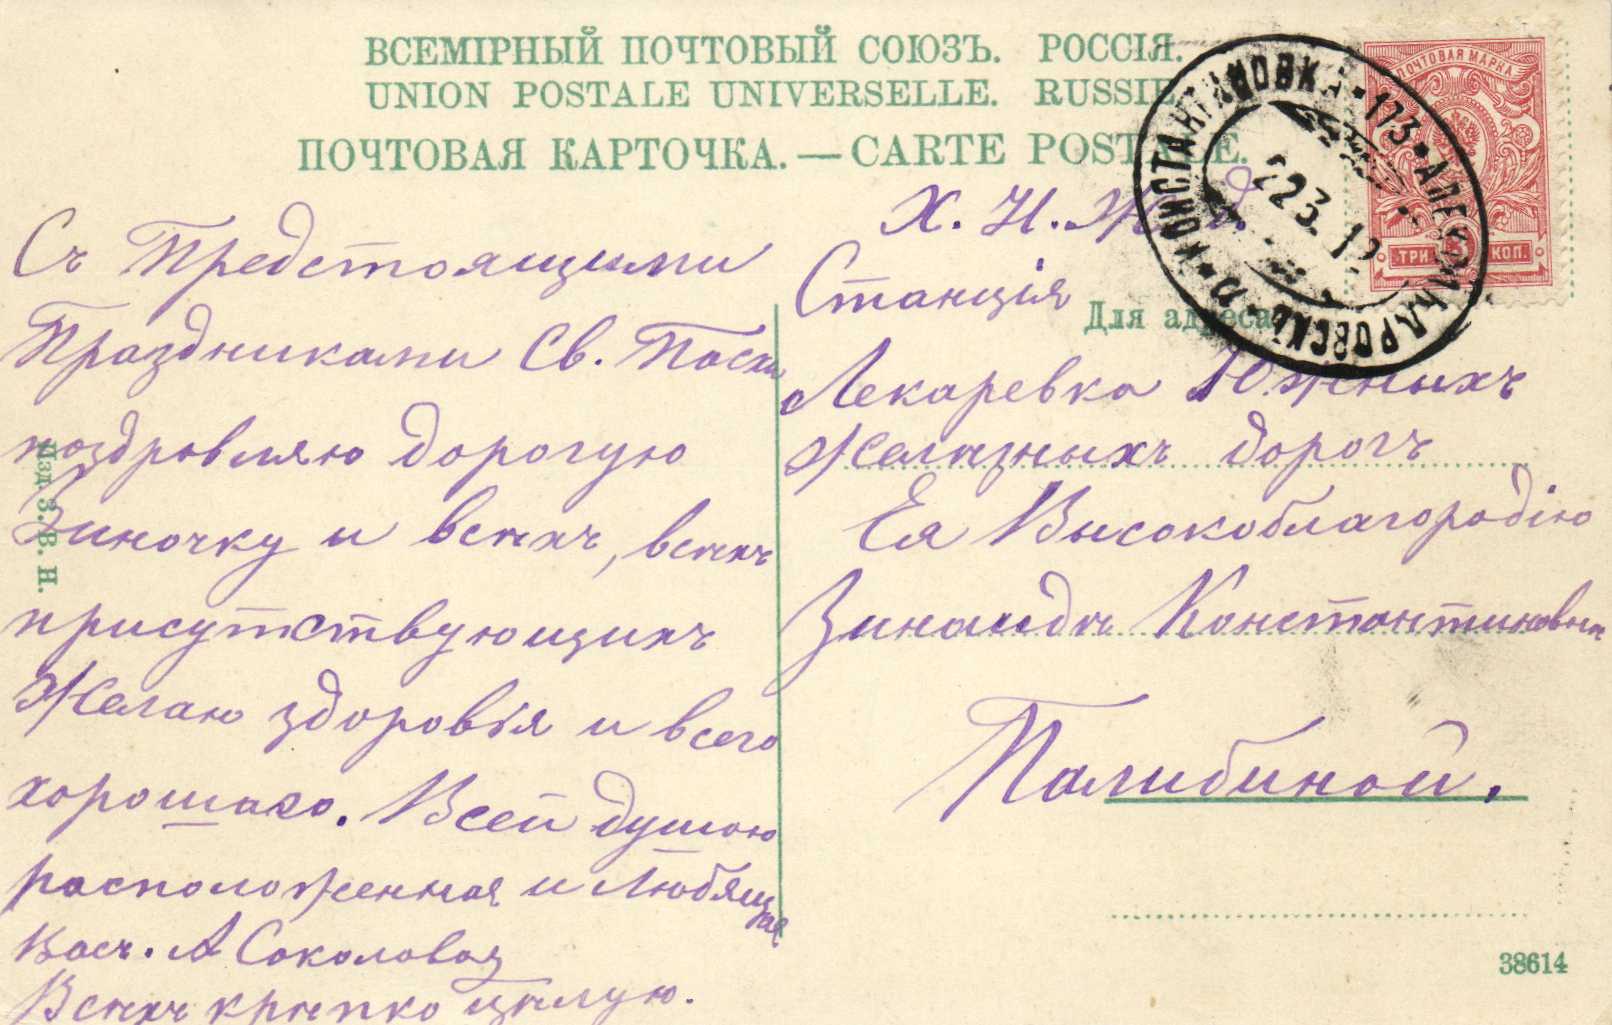 ВСЕМІРНЫЙ ПОЧТОВЫЙ СОЮЗЪ. РОССІЯ.
UNION POSTALE UNIVERSELLE. RUSSIE
ПОЧТОВАЯ КАРТОЧКА. — CARTE POSTALE.
ПОЧТОВАЯ МАРКА
ТРИ 3 КОП.
КОНСТАНТИНОВКА * 173 * АЛЕКСАНДРОВСКЪ
223. 12
Для адреса
Съ Предстоящими
Праздниками Св. Пасхи
поздровляю дорогую
Зиночку и всѣхъ, всѣхъ
присутствующихъ
Желаю здоровія и всего
хорошаго. Всей душою
расположенная и Любящая
Васъ. А Соколова
Всѣхъ крѣпко цѣлую.
Х. Н. Ж. д.
Станція
Лекаревка Южныхъ
Желѣзныхъ дорогъ
Ея Высокоблагородію
Зинаидѣ Константиновнѣ
Палибиной.
Изд. З. В. Н.
38614